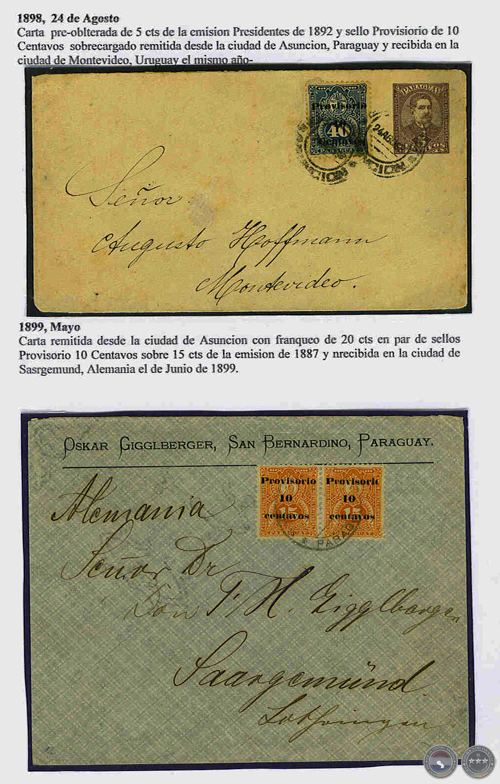 1898, 24 de Agosto
Carta pre-oblterada de 5 cts de la emision Presidentes de 1892 y sello Provisiorio de 10
Centavos sobrecargado remitida desde la ciudad de Asuncion, Paraguay y recibida en la
ciudad de Montevideo, Uruguay el mismo año-
Provisorio
10
40
centavos
PARAGUAY
Señor
Augusto Hoffmann
Montevideo.
1899, Mayo
Carta remitida desde la ciudad de Asuncion con franqueo de 20 cts en par de sellos
Provisorio 10 Centavos sobre 15 cts de la emision de 1887 y nrecibida en la ciudad de
Sasrgemund, Alemania el de Junio de 1899.
OSKAR GIGGLBERGER, SAN BERNARDINO, PARAGUAY.
Provisorio Provisorio
10 10
15 15
centavos centavos
PARAGUAY
Alemania
Señor Dr
Don T. H. Gigglberger
Saargemünd.
Lothringen